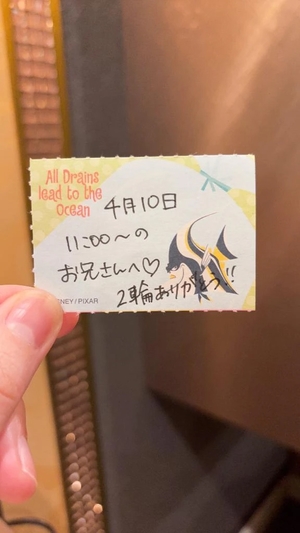 All Drains
lead to the
Ocean
4月10日
11:00〜の
お兄さんへ♡
2輪ありがとう!!
NEY / PIXAR